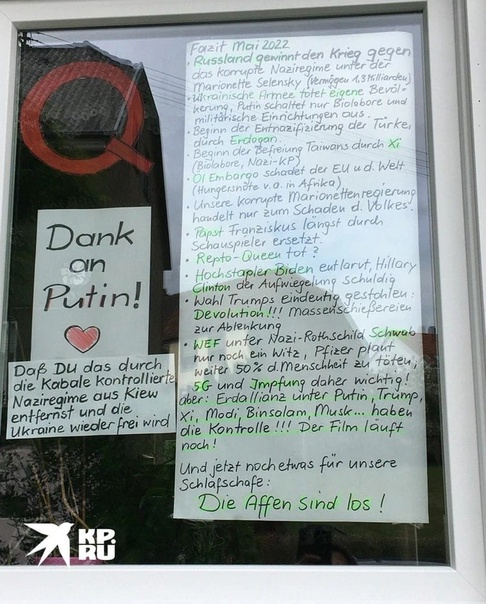 Q
Dank
an
Putin!
Daß DU das durch
die Kabale kontrollierte
Naziregime aus Kiew
entfernst und die
Ukraine wieder frei wird
Fazit Mai 2022
• Russland gewinnt den Krieg gegen
das korrupte Naziregime unter der
Marionette Selensky (Vermögen 1,3 Milliarden)
• Ukrainische Armee tötet eigene Bevöl-
kerung, Putin schaltet nur Biolabore und
militärische Einrichtungen aus.
• Beginn der Entnazifizierung der Türkei
durch Erdogan.
Beginn der Befreiung Taiwans durch Xi
(Biolabore, Nazi-KP)
• Öl Embargo schadet der EU u.d. Welt
(Hungersnöte v.a. in Afrika)
• Unsere korrupte Marionettenregierung
handelt nur zum Schaden d. Volkes.
• Papst Franziskus längst durch
Schauspieler ersetzt.
• Repto-Queen tot?
• Hochstapler Biden entlarvt, Hillary
Clinton der Aufwiegelung schuldig
• Wahl Trumps eindeutig gestohlen:
Devolution!!! Massenschießereien
zur Ablenkung
• WEF unter Nazi-Rothschild Schwab
nur noch ein Witz, Pfizer plant
weiter 50% d. Menschheit zu töten,
5G und Impfung daher wichtig!
aber: Erdallianz unter Putin, Trump,
Xi, Modi, Binsalam, Musk... haben
die Kontrolle!!! Der Film läuft
noch!
Und jetzt noch etwas für unsere
Schlafschafe:
Die Affen sind los!
KP.
RU